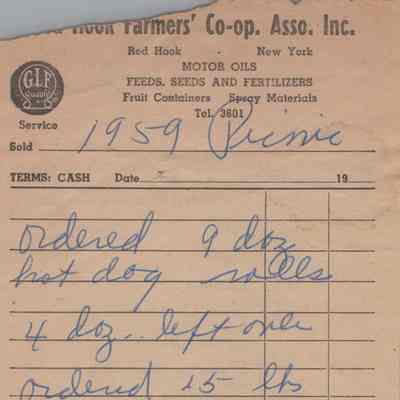 Red Hook Farmers' Co-op. Asso. Inc.
Red Hook - New York
MOTOR OILS
FEEDS, SEEDS AND FERTILIZERS
Fruit Containers Spray Materials
Tel. 3601
G.L.F.
Quality
Service
Sold 1959 Picnic
TERMS: CASH Date 19
ordered 9 doz
hot dog rolls
4 doz. left over
ordered 15 lbs